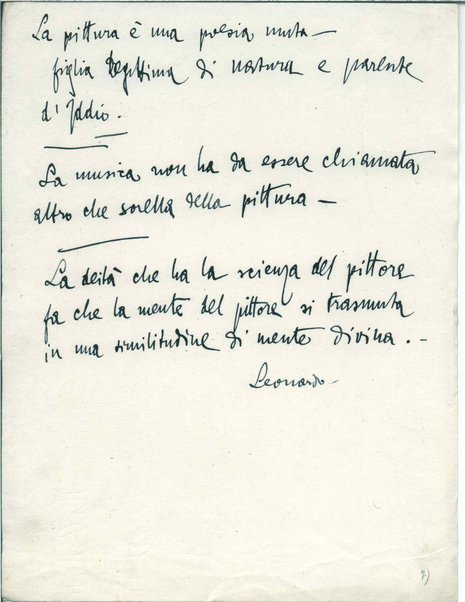 La pittura è una poesia muta —
figlia legittima di natura e parente
d' Iddio.
La musica non ha da essere chiamata
altro che sorella della pittura —
La deità che ha la scienza del pittore
fa che la mente del pittore si trasmuta
in una similitudine di mente divina. —
Leonardo —
7)